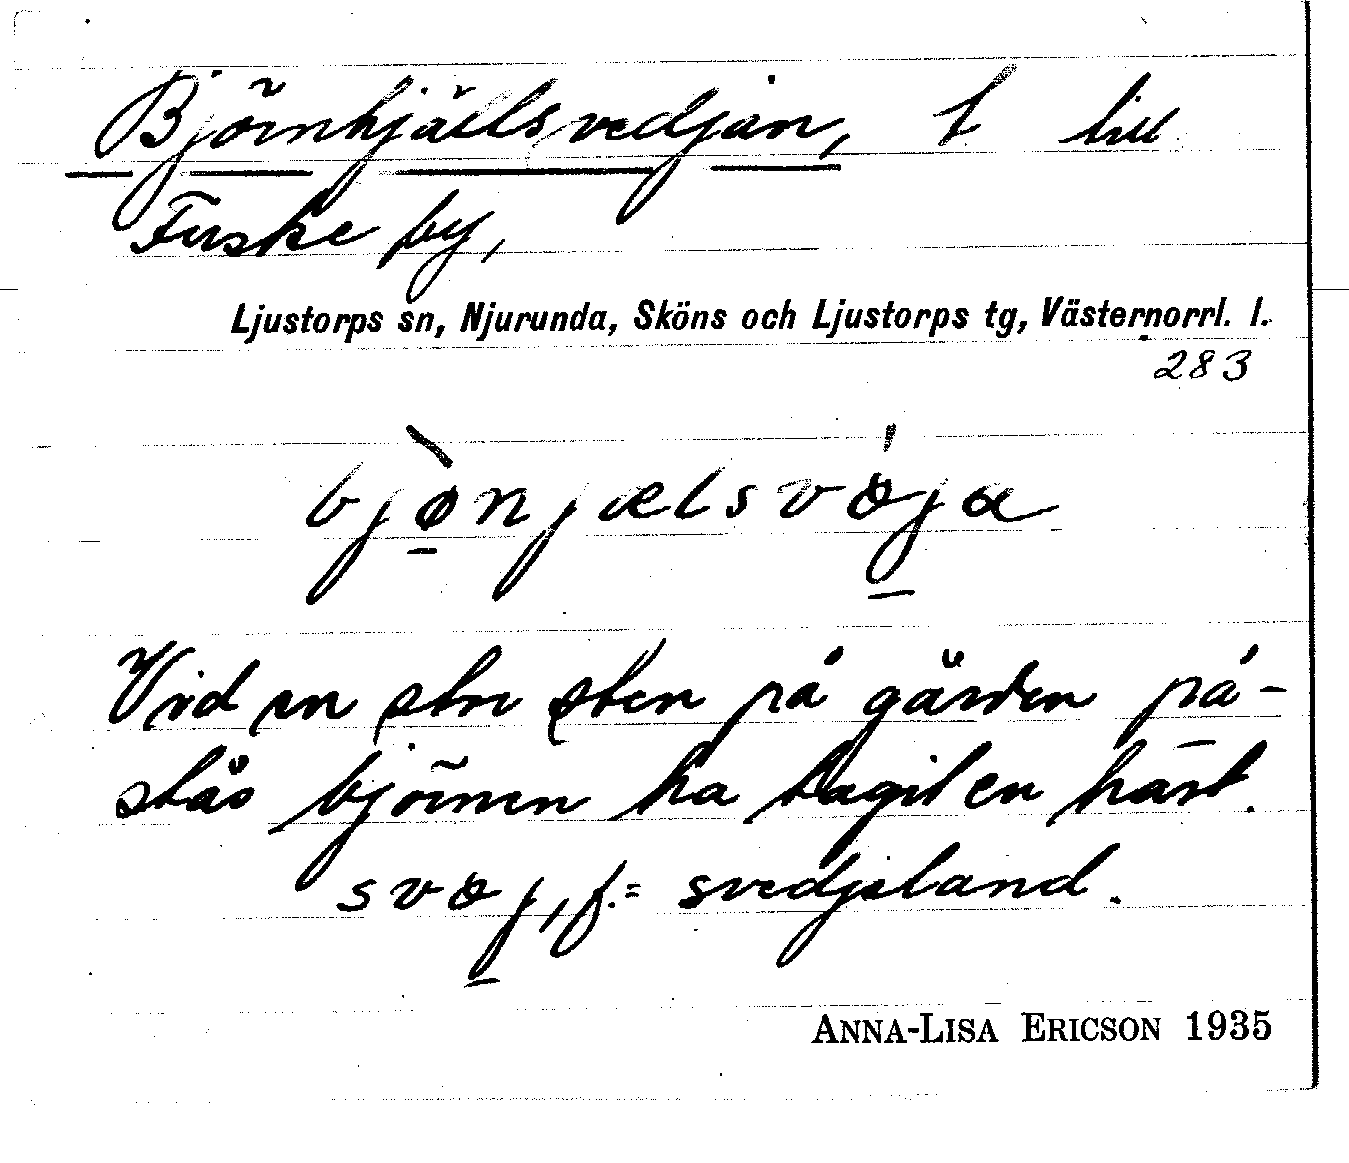 Björnhjällsvedjan, t till
Fuske by,
Ljustorps sn, Njurunda, Sköns och Ljustorps tg, Västernorrl. l.
283
bjø̀njælsvöja
Vid en stor sten på gården på-
stås björnen ha tagit en häst.
svöj, f. = svedjeland.
ANNA-LISA ERICSON 1935